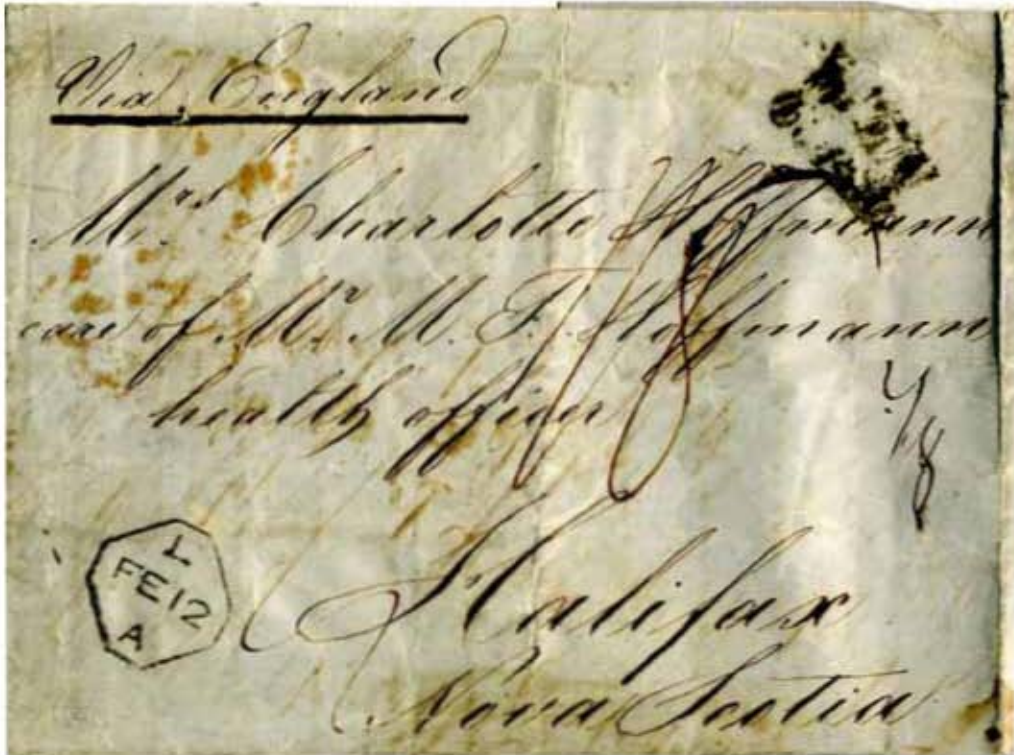 Via England
Mrs Charlotte Hoffmann
care of Mr. M. F. Hoffmann
health officer
1/8
Halifax
Nova Scotia
L
FE12
A